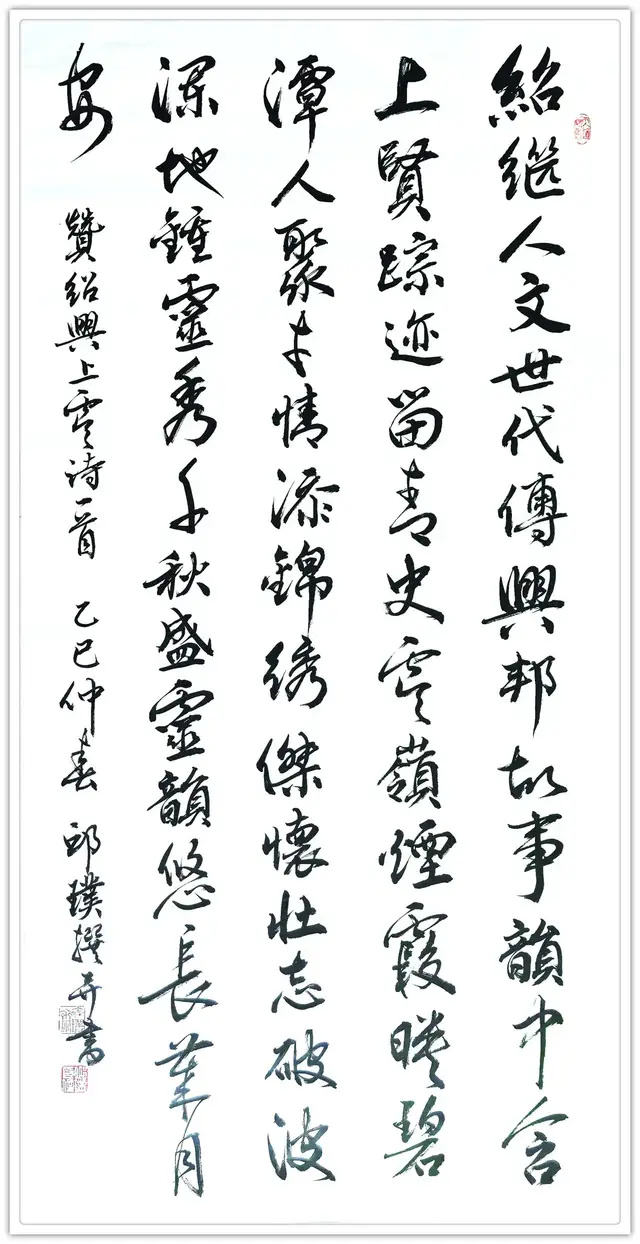 紹继人文世代傳興邦故事韻中含
上賢踪迹留青史虞嶺煙霞映碧
潭人聚才情添錦绣傑懷壯志破波
澜地鍾靈秀千秋盛靈韻悠長月
安 贊紹興上虞诗一首 乙巳仲春 邱璞撰并書